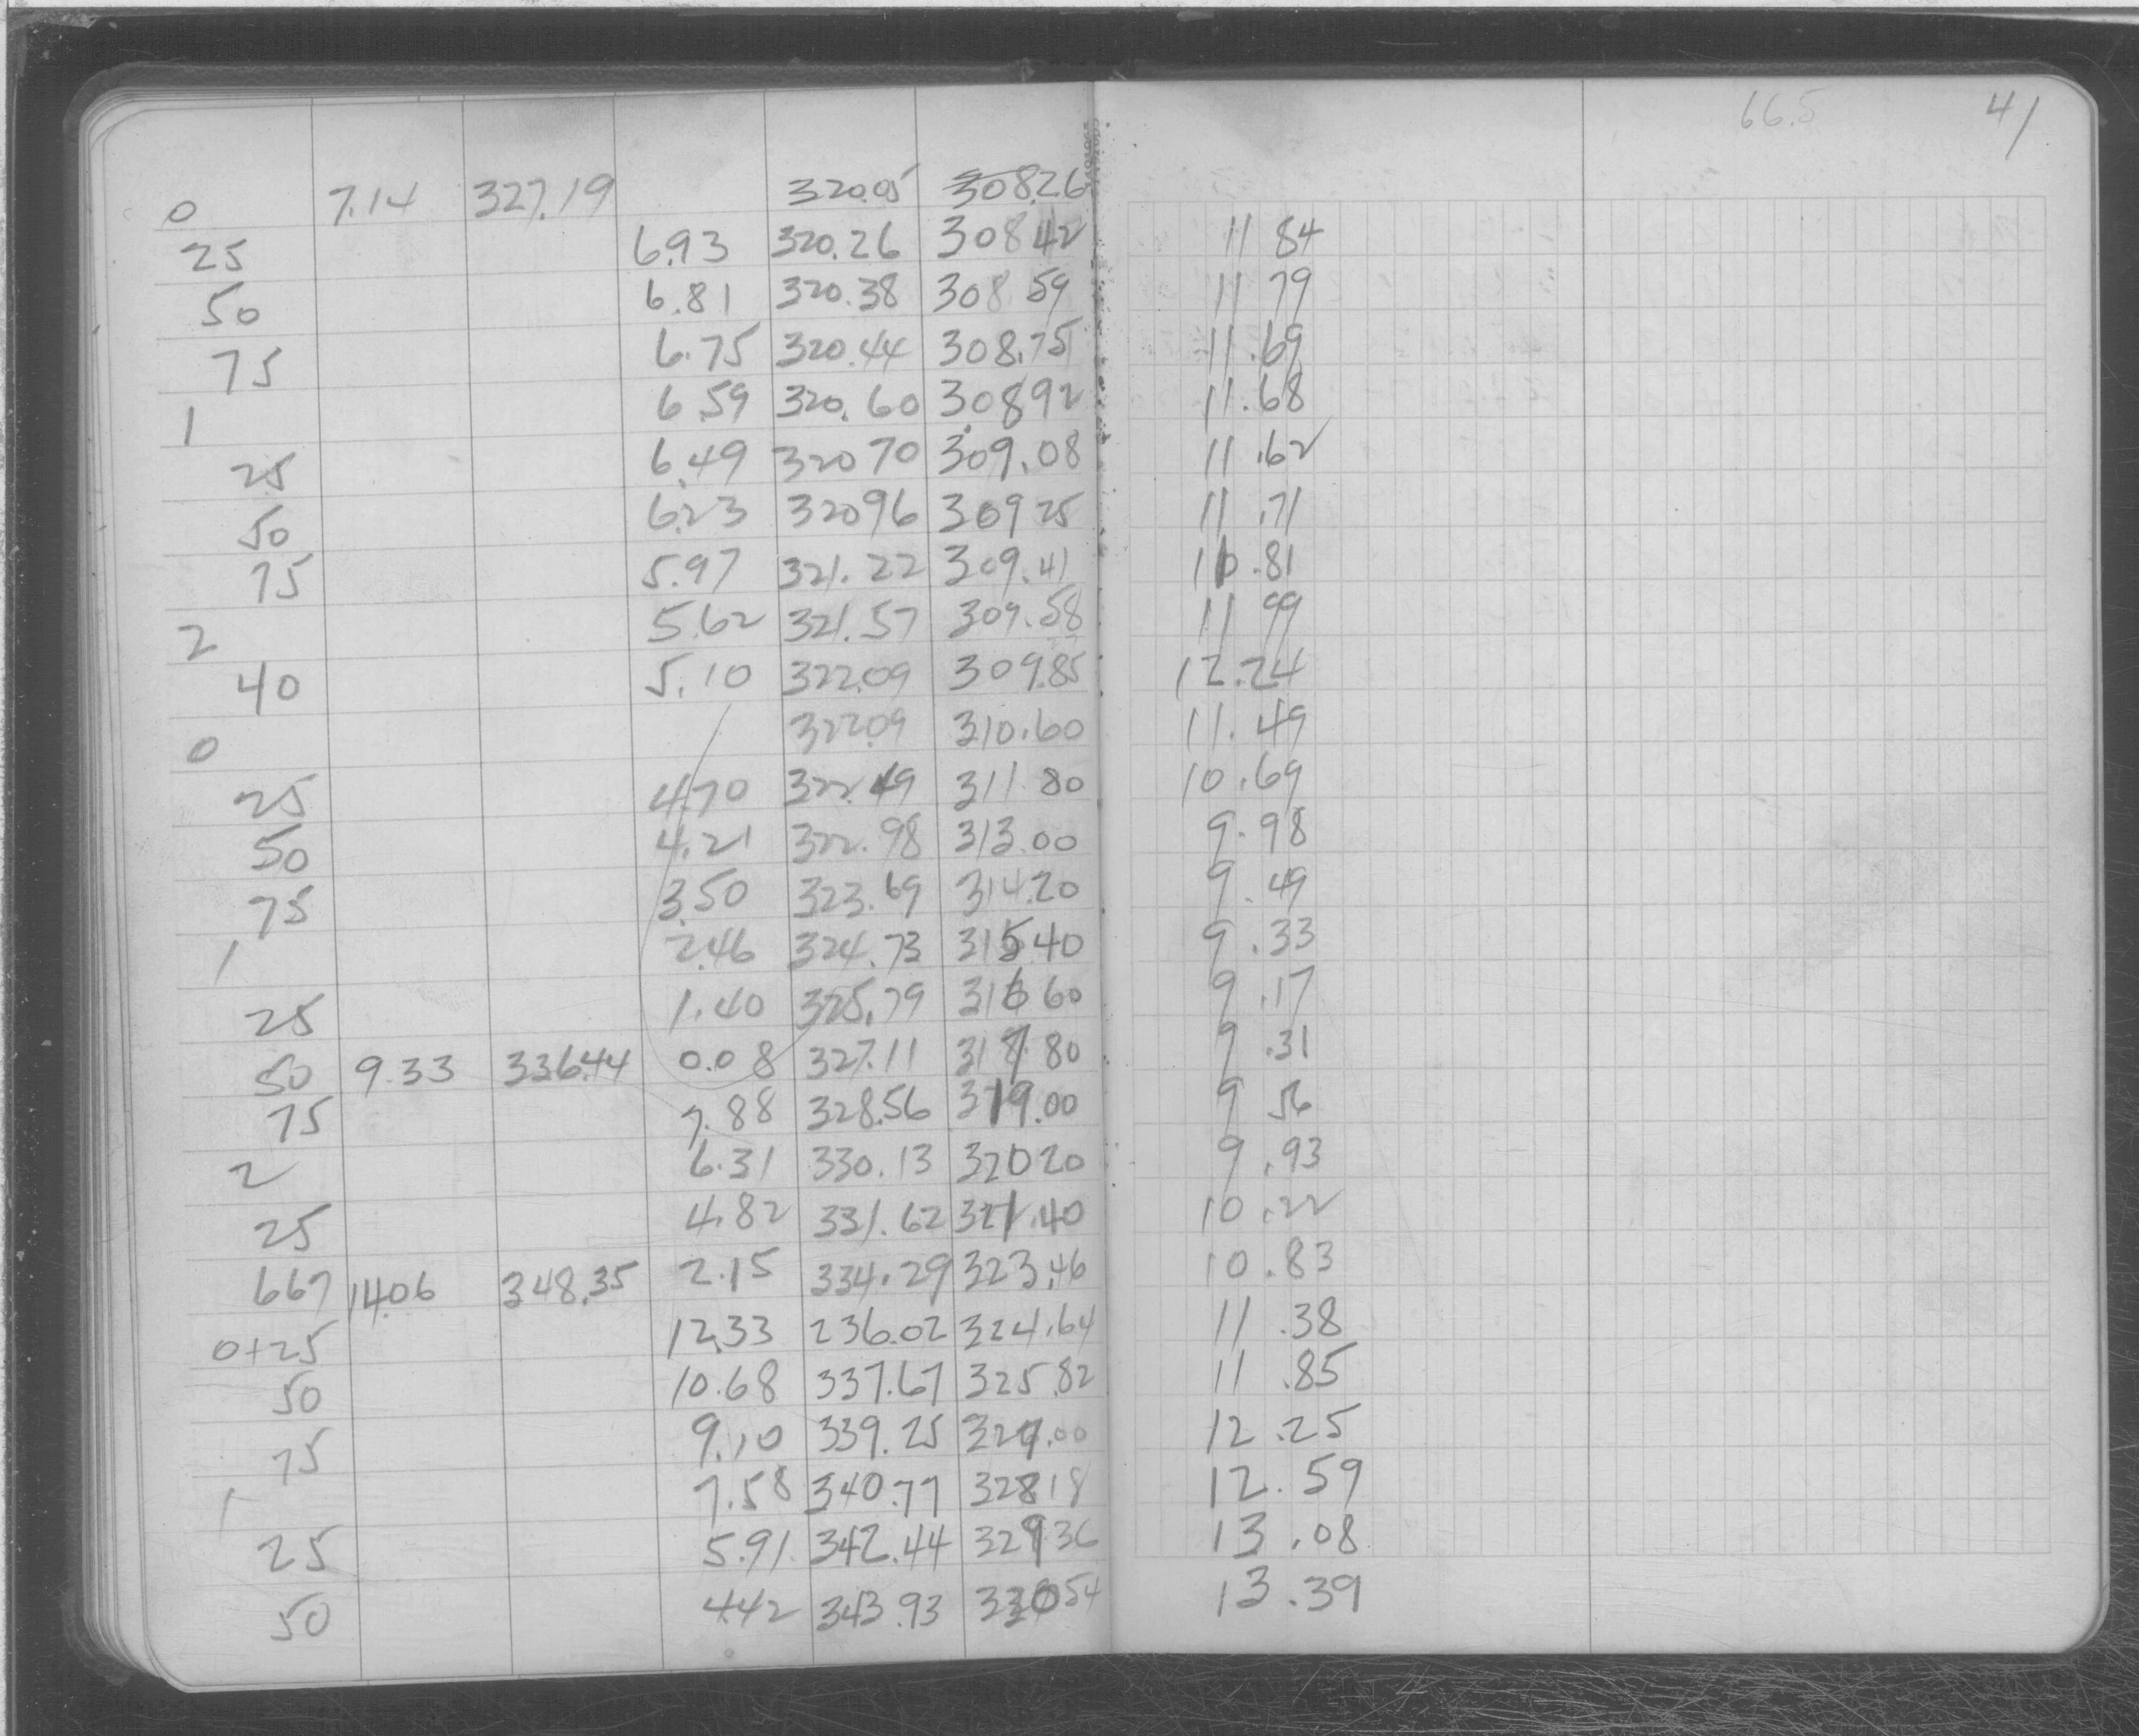 66.5 41
0 7.14 327.19 320.05 308.26
25 6.93 320.26 308.42 11 84
50 6.81 320.38 308.59 11 79
75 6.75 320.44 308.75 11.69
1 6.59 320.60 308.92 11.68
25 6.49 320 70 309.08 11.62
50 6.23 320 96 309 25 11.71
75 5.97 321.22 309.41 11.81
2 5.62 321.57 309.58 11 99
40 5.10 322.09 309.85 12.24
0 322.09 310.60 11.49
25 4.70 322.49 311 80 10.69
50 4.21 322.98 313.00 9.98
75 3.50 323.69 314.20 9.49
1 2.46 324.73 315 40 9.33
25 1.40 325.79 316 60 9.17
50 9.33 336.44 0.08 327.11 317 80 9.31
75 7.88 328.56 319.00 9 56
2 6.31 330.13 320 20 9.93
25 4.82 331.62 321.40 10.22
667 14.06 348.35 2.15 334.29 323.46 10.83
0+25 12.33 236.02 324.64 11.38
50 10.68 337.67 325.82 11.85
75 9.10 339.25 327.00 12.25
1 7.58 340.77 328 18 12.59
25 5.91 342.44 329.36 13.08
50 4.42 343.93 330 54 13.39